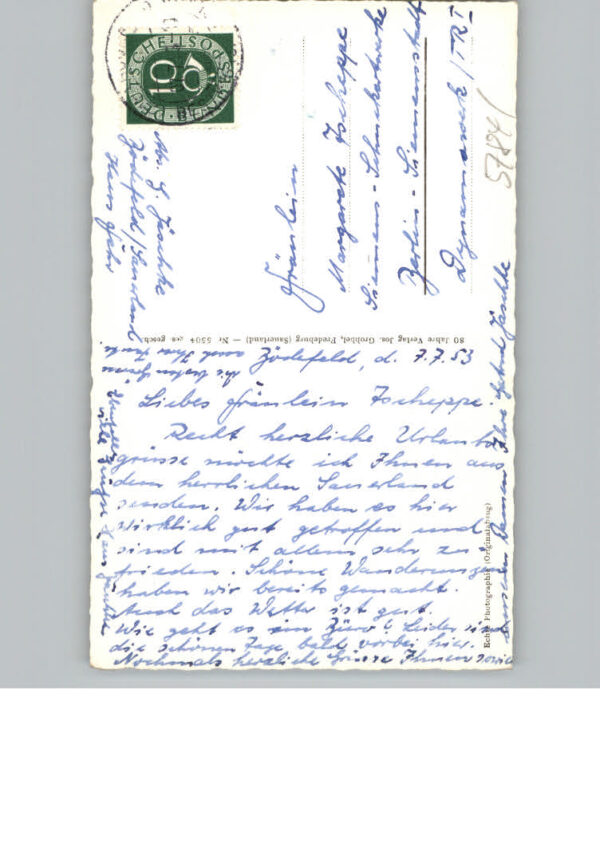 DEUTSCHE BUNDESPOST
10
Abs. G. Jaschke
Zödefeld/Sauerland
Haus Jahr
Fräulein
Margarete Tscheppe
Siemens-Schuckertwerke
Berlin-Siemensstadt
Dynamowerk/TRI
5784/
80 Jahre Verlag Jos. Grobbel, Fredeburg (Sauerland) — Nr. 5504 ges. gesch.
Zödefeld, d. 7.7.53
Liebes Fräulein Tscheppe.
Recht herzliche Urlaubs
grüsse möchte ich Ihnen aus
dem herrlichen Sauerland
senden. Wir haben es hier
wirklich gut getroffen und
sind mit allem sehr zu-
frieden. Schöne Wanderungen
haben wir bereits gemacht.
Auch das Wetter ist gut.
Wie geht es im Büro? Leider sind
die schönen Tage bald vorbei hier.
Nochmals herzliche Grüsse Ihnen sowie
Ihre Gertrud Jaschke
Ebenfalls
viele Grüße
Echte Photographie (Originalabzug)